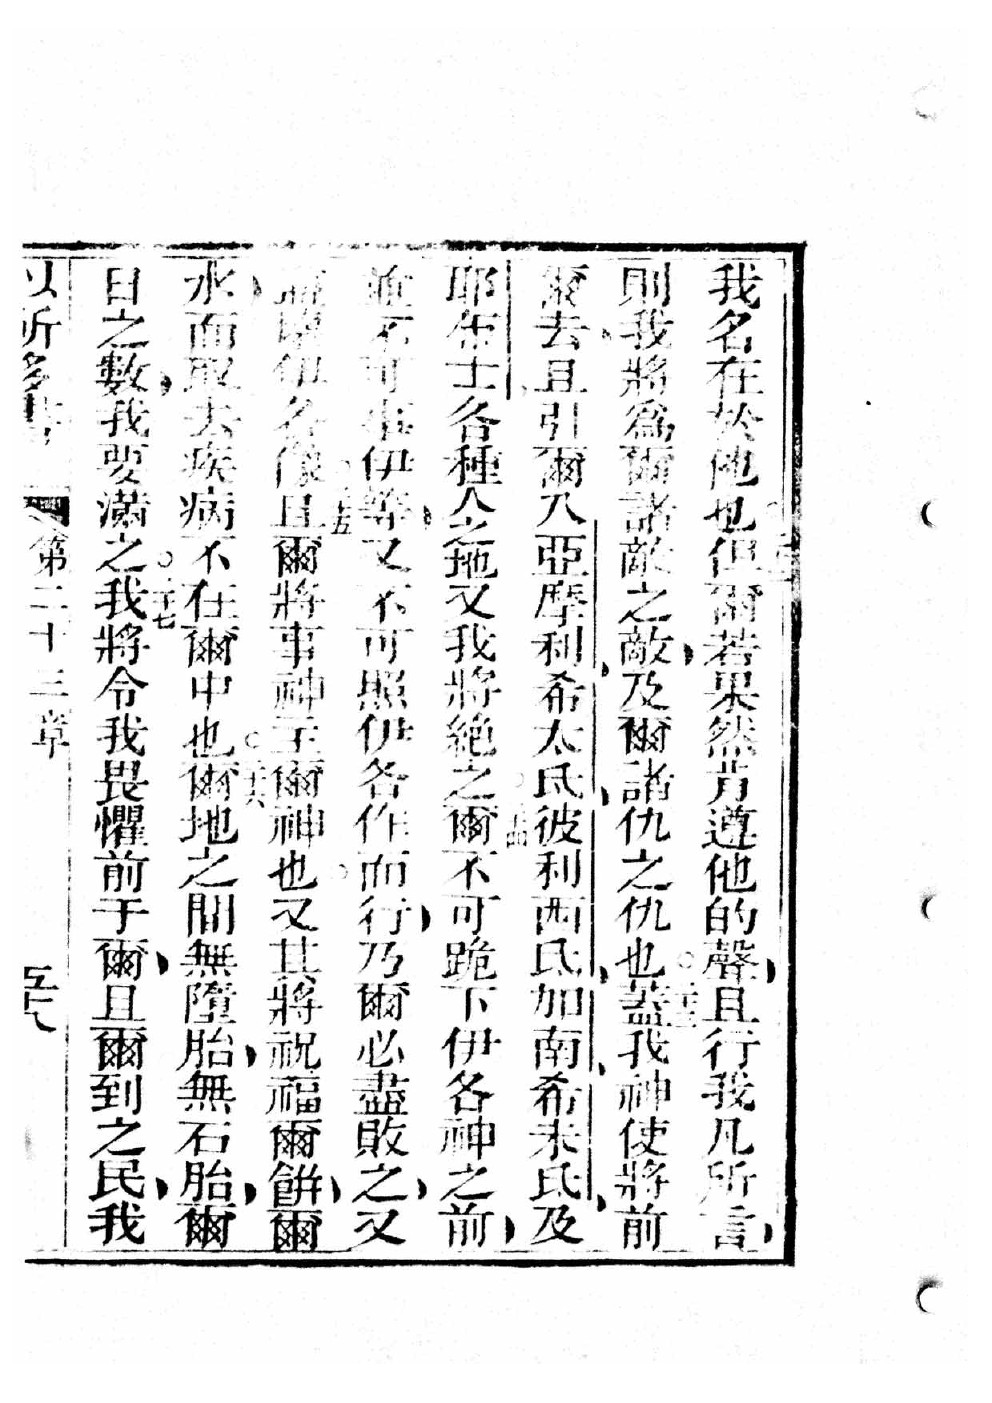 我名在於他也但爾若果然肯遵他的聲且行我凡所言
則我將爲爾諸敵之敵及爾諸仇之仇也蓋我神使將前
爾去且引爾入亞摩利希太氏彼利西氏加南希未氏及
耶布士各種人之地又我將絕之爾不可跪下伊各神之前
並不可事伊等又不可照伊各作而行乃爾必盡敗之又
伊各像且爾將事神主爾神也又其將祝福爾餅爾
水而取去疾病不在爾中也爾地之間無墮胎無石胎爾
日之數我要滿之我將令我畏懼前于爾且爾到之民我
以所多書 第二十三章 五十八
二十二
二十三
二十四
二十五
二十六
二十七